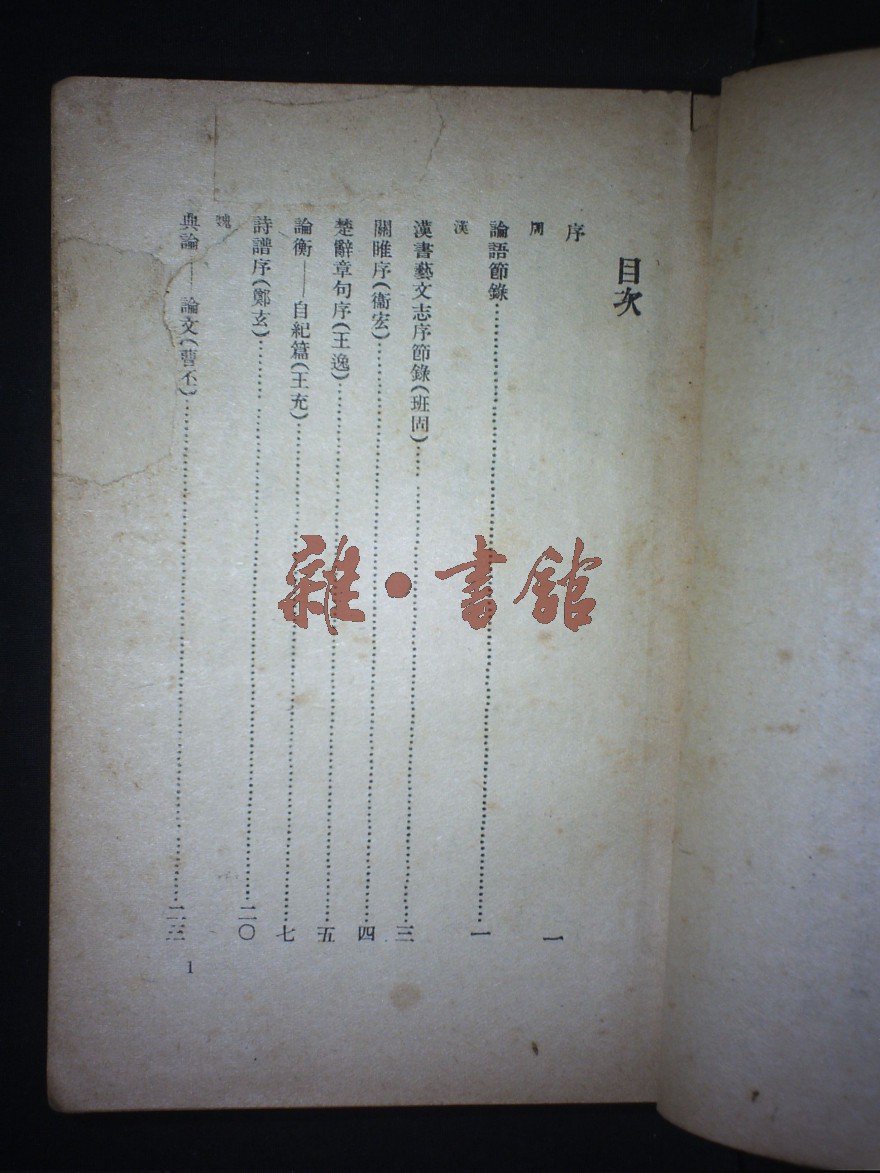 目次
序 一
周
論語節錄 一
漢
漢書藝文志序節錄(班固) 三
關雎序(衞宏) 四
楚辭章句序(王逸) 五
論衡——自紀篇(王充) 七
詩譜序(鄭玄) 二〇
魏
典論——論文(曹丕) 二三
1
雜·書館